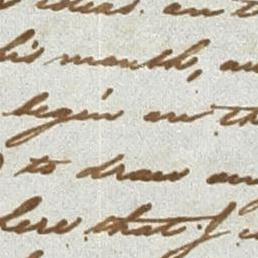 ideas. on
his month, an
begin on th
to draw any
here that I